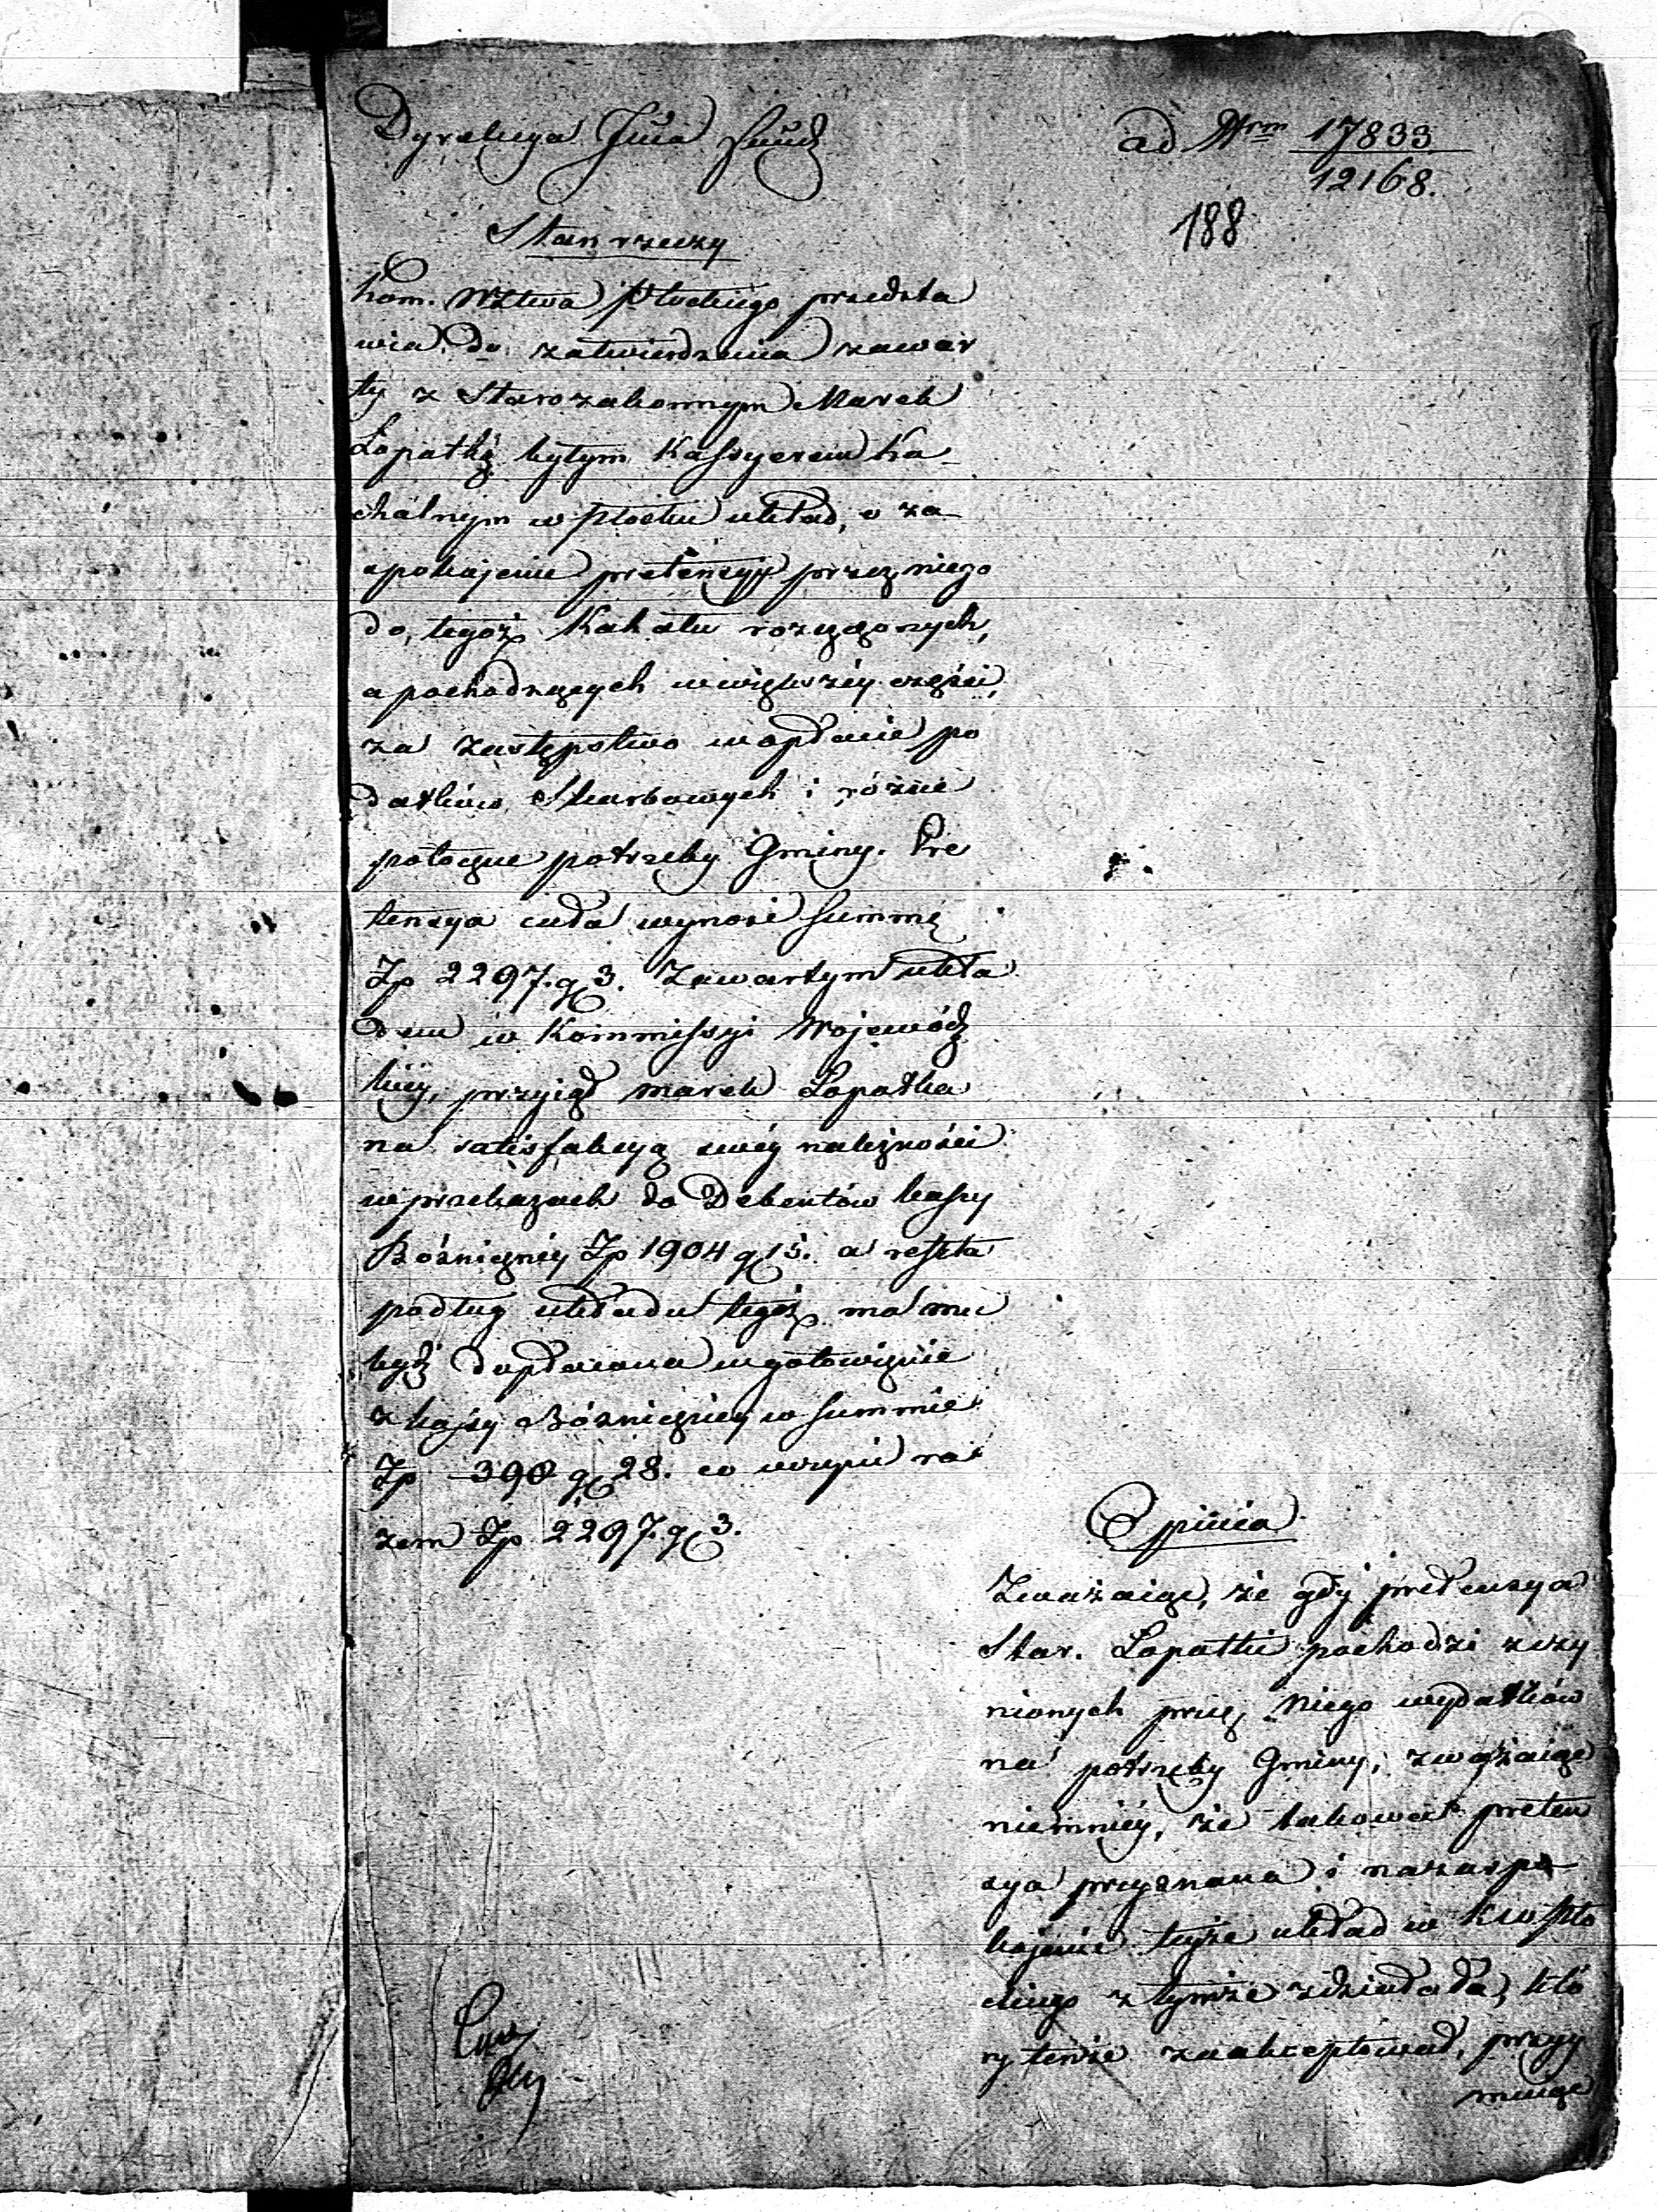 Dyrekcya Jlna Fund
ad Nrm 17833
12168.
188
Stan rzeczy
Kom. Wztwa Płockiego przedsta
wia do zatwierdzenia zawar
ty z Starozakonnym Marek
Łopatką byłym Kassyerem Ka-
chalnym w Płocku układ, o za-
spokajenie pretensyy przez niego
do tegoż Kahału rozczonych,
a pochodzących w większéy części,
za zastępstwo w opłacie po
datków Skarbowych i różne
potoczne potrzeby Gminy. Pre
tensya cała wynosi Summę
Zp 2297. g 3. Zawartym ukła
dem w Kommissyi Wojewódz
kiéy, przyiął Marek Łopatka
na satisfakcyą swéy należności
w przekazach do Debentów kassy
Bóżniczéy Zp 1904 g 5. a reszta
podług układu tegoż ma mu
bydź dopłacona w gotowiznie
z kassy Bóżniczéy w Summie
Zp 390 g 28. co uczyni ra
zem Zp. 2297. g 3.
Opinia
Zważaiąc, że gdy pretensya
Star. Łopatki pochodzi z czy
nionych przez niego wydatków
na potrzeby Gminy, zważaiąc
niemniéy, że takowa preten
sya przyznana i na zaspo
kojenie teyże układ w KW Pło
ckiego z tymże zdziałała, któ
ry tenże zaakceptował, przyy
muiąc